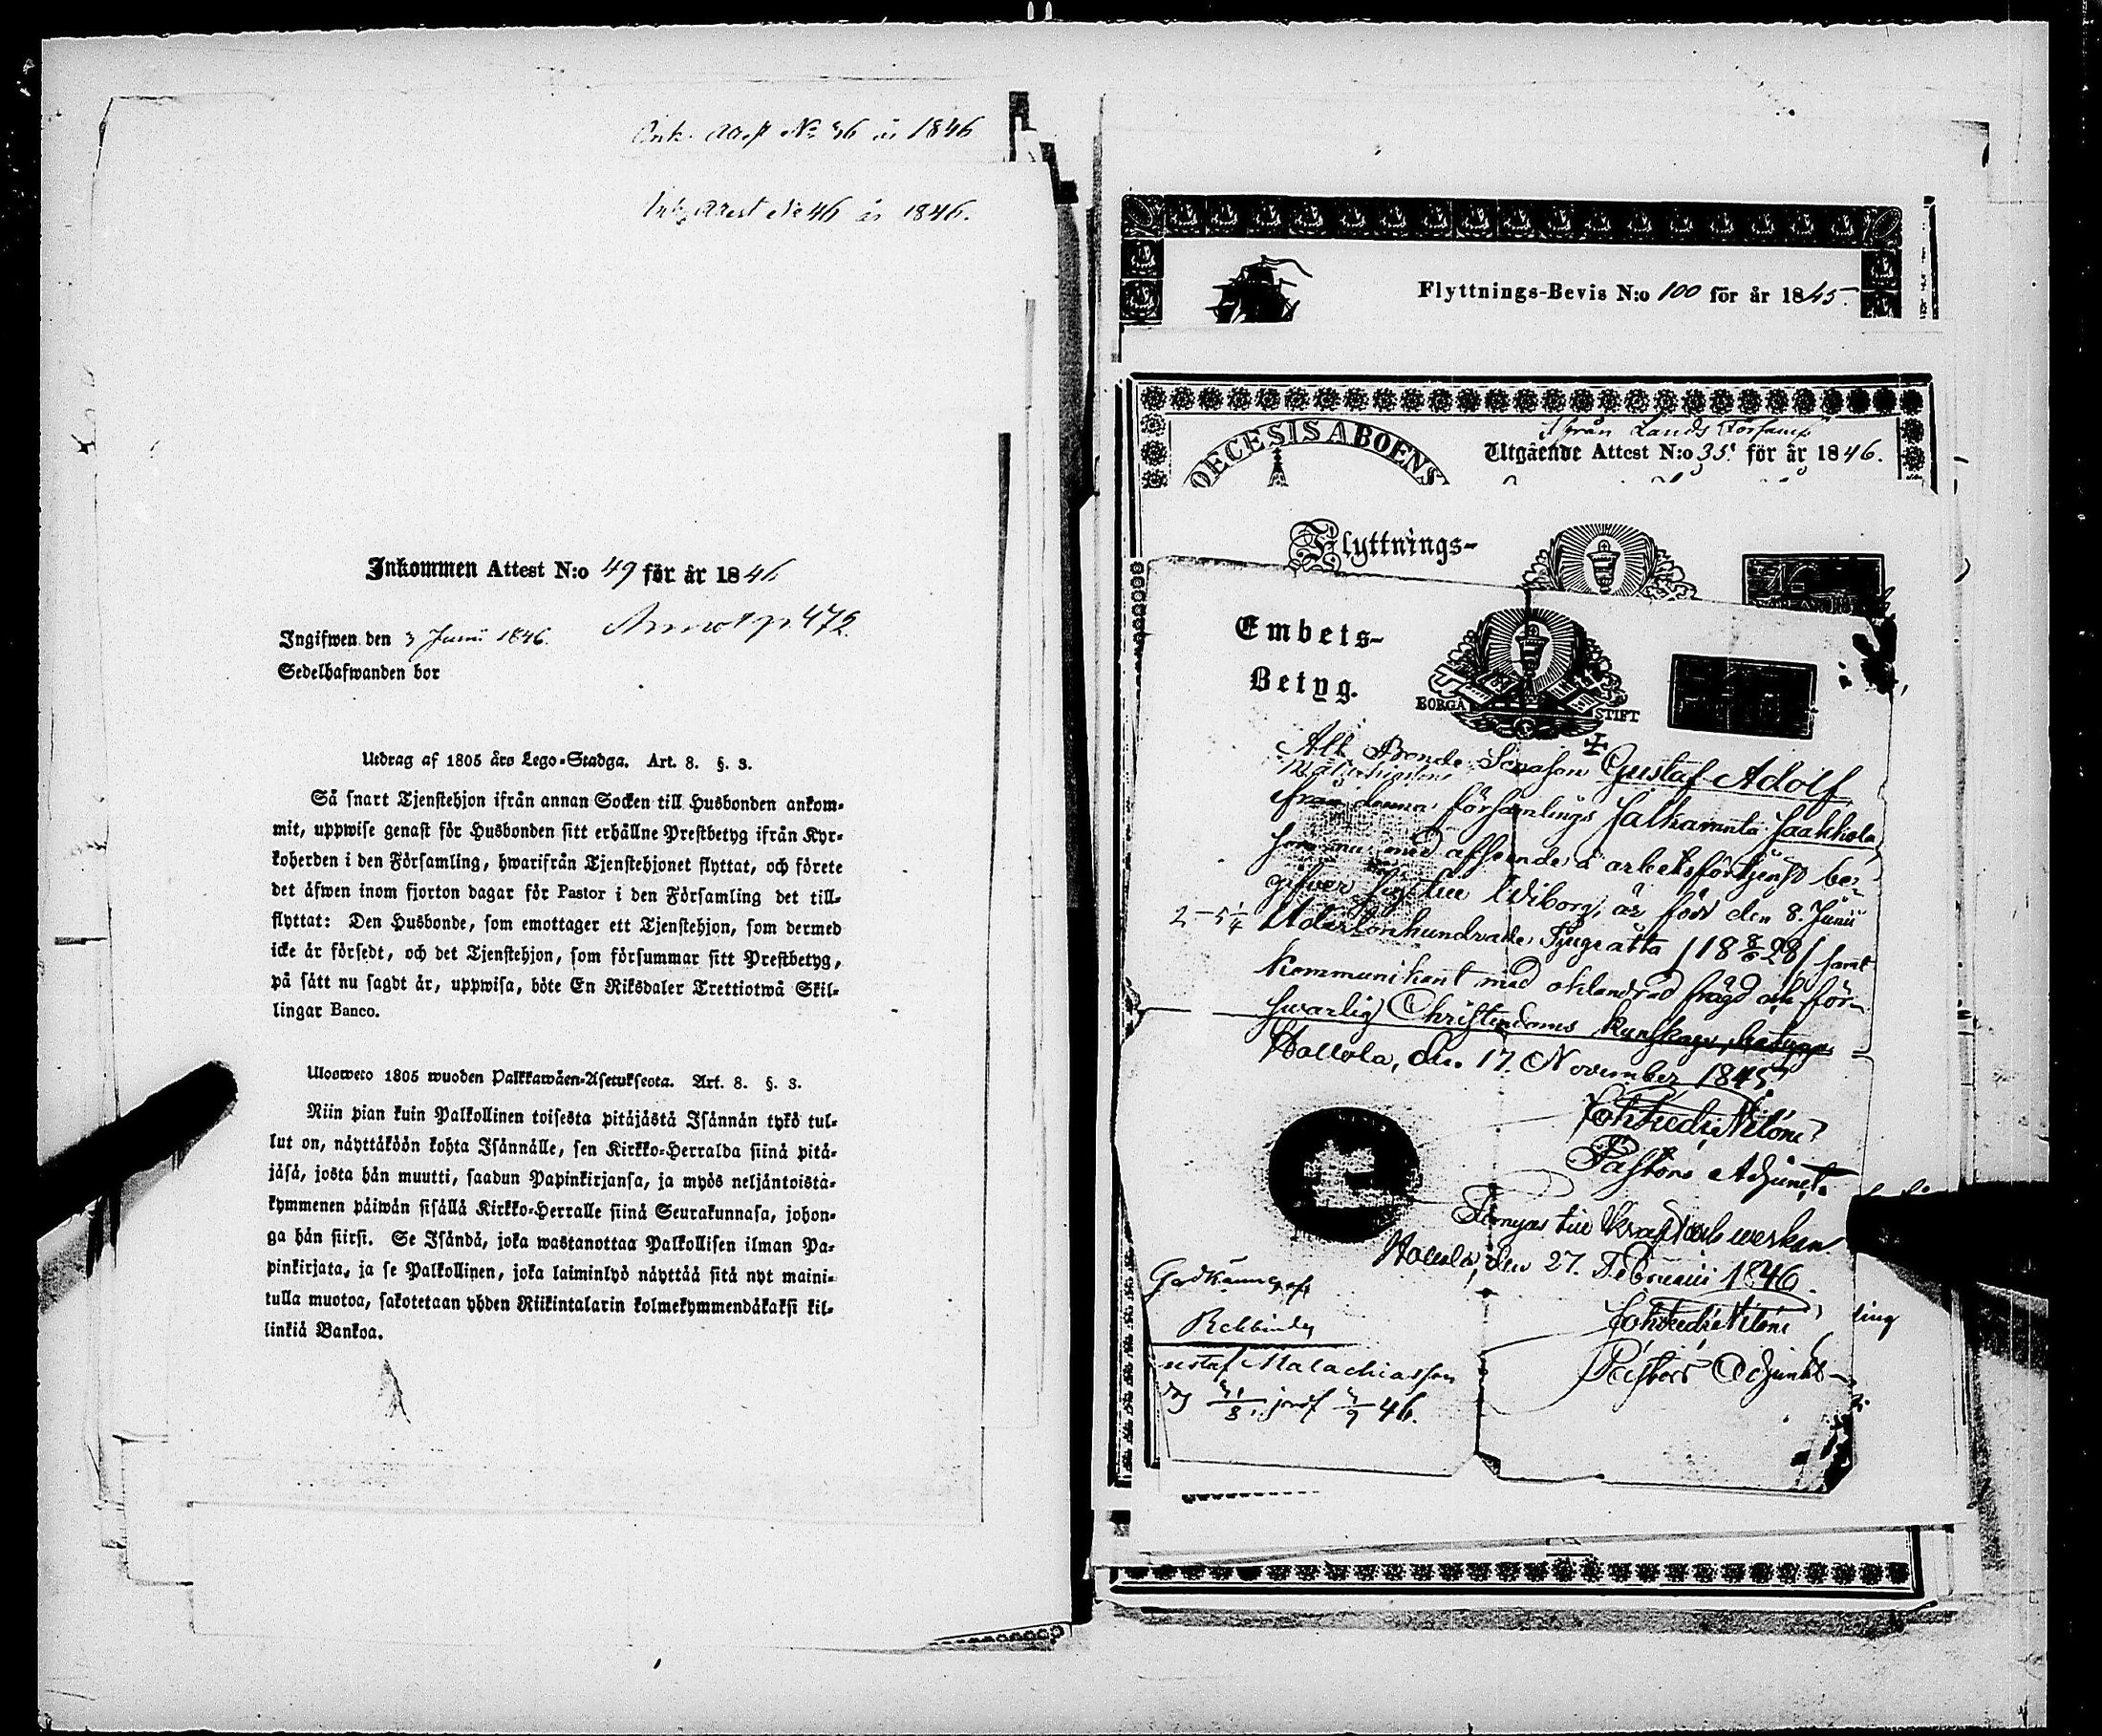 Ink. Attest No 36 år 1846
Ink. Attest No 46 år 1846.
Inkommen Attest N:o 49 för år 1846
Annot p. 472.
Ingifwen den 3 Junii 1846.
Sedelhafwanden bor
Utdrag af 1805 års Lego-Stadga. Art. 8. §. 3.
Så snart Tjenstehjon ifrån annan Socken till Husbonden ankom-
mit, uppwise genast för Husbonden sitt erhållne Prestbetyg ifrån Kyr-
koherden i den Församling, hwarifrån Tjenstehjonet flyttat, och förete
det äfwen inom fjorton dagar för Pastor i den Församling det till-
flyttat: Den Husbonde, som emottager ett Tjenstehjon, som dermed
icke är försedt, och det Tjenstehjon, som försummar sitt Prestbetyg,
på sätt nu sagdt är, uppwisa, böte En Riksdaler Trettiotwå Skil-
lingar Banco.
Ulosweto 1805 wuoden Palkkawäen-Asetuksesta. Art. 8. §. 3.
Niin pian kuin Palkollinen toisesta pitäjästä Isännän tykö tul-
lut on, näyttäköön kohta Isännälle, sen Kirkko-Herralda siinä pitä-
jäsä, josta hän muutti, saadun Papinkirjansa, ja myös neljäntoista-
kymmenen päiwän sisällä Kirkko-Herralle siinä Seurakunnasa, johon-
ga hän siirsi. Se Isändä, joka wastanottaa Palkollisen ilman Pa-
pinkirjata, ja se Palkollinen, joka laiminlyö näyttää sitä nyt maini-
tulla muotoa, sakotetaan yhden Riikintalarin kolmekymmendäkaksi kil-
linkiä Bankoa.
Flyttnings-Bevis N:o 100 för år 1845.
Ifrån Lands Församl
DOECESIS ABOENS
Utgående Attest N:o 35. för år 1846.
Flyttnings-
Embets-
Betyg.
BORGÅ STIFT
Att Bonde Sonason Gustaf Adolf
ifrån denna församlings Jalkaranta Jaakkola
som nu med afseende å arbetsförtjenst be-
gifver sig till Wiborg, är född den 8. Junii
2-5¼ Adertonhundrade Tjugeåtta /18 8/6 28/ samt
kommunikant med oklandrad frägd och för-
svarlig Christendoms kunskap, betygar
Hollola, den 17. November 1845.
Pastors Adjunct.
Förnyas till kraft och werkan
Hollola, den 27. Februarii 1846.
Pastors Adjunkt
ling
Godkännes af
Rehbinder
ustaf Malachiasson
46.